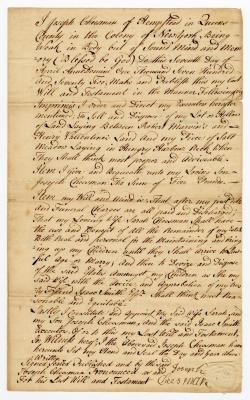 I Joseph Cheesman of Hempstead in Queens
County in the Colony of New York Being
Weak in Body but of Sound Mind and Mem
ory (Blessed be God) Do this Seventh Day of
April Annodomini One Thousand Seven Hundred
Seventy Five Make and Publish this my Last
Will and Testament in the Manner Following
Imprimis I order and Direct my Executors hereafter
mentioned To Sell and Dispose of my Lot or
of Land Laying Between and
Henry Land And my Piece of Salt
Meadow Laying in Hungry Harbor Neck when
They Shall think most proper and Advisable
Item I Give and Bequeath unto my Loving Son
Joseph Cheesman The Sum of Five Pounds
Item my Will and Mind is That after my just Debts
and Funeral Charges are all paid and Discharged
That my Loving Wife Sarah Cheesman Shall have
the use and Benefit of all the Remainder of my Estate
both Real and personal for the Maintaining and bring
ing up my Children untill they Shall arive at Law
ful age or Marry And then to Devise and Dispose
of the said Estate amongst my Children as She my
said with the advice and approbation of my
Friend Isaac Smith Shall think most rea
sonable and Equitable
Lastly I Constitute and appoint my Said Wife Sarah and
my Son Joseph Cheesman and the said Isaac Smith
Executors to this my Last Will and Testament
In Witness hereof I the Above said Joseph Cheesman have
hereunto Set my Hand and Seal the Day and Year above
Written
Signed Sealed Published and by the said
Joseph Cheesman Pronounced as and
For his Last Will and Testament
Joseph
Cheesman